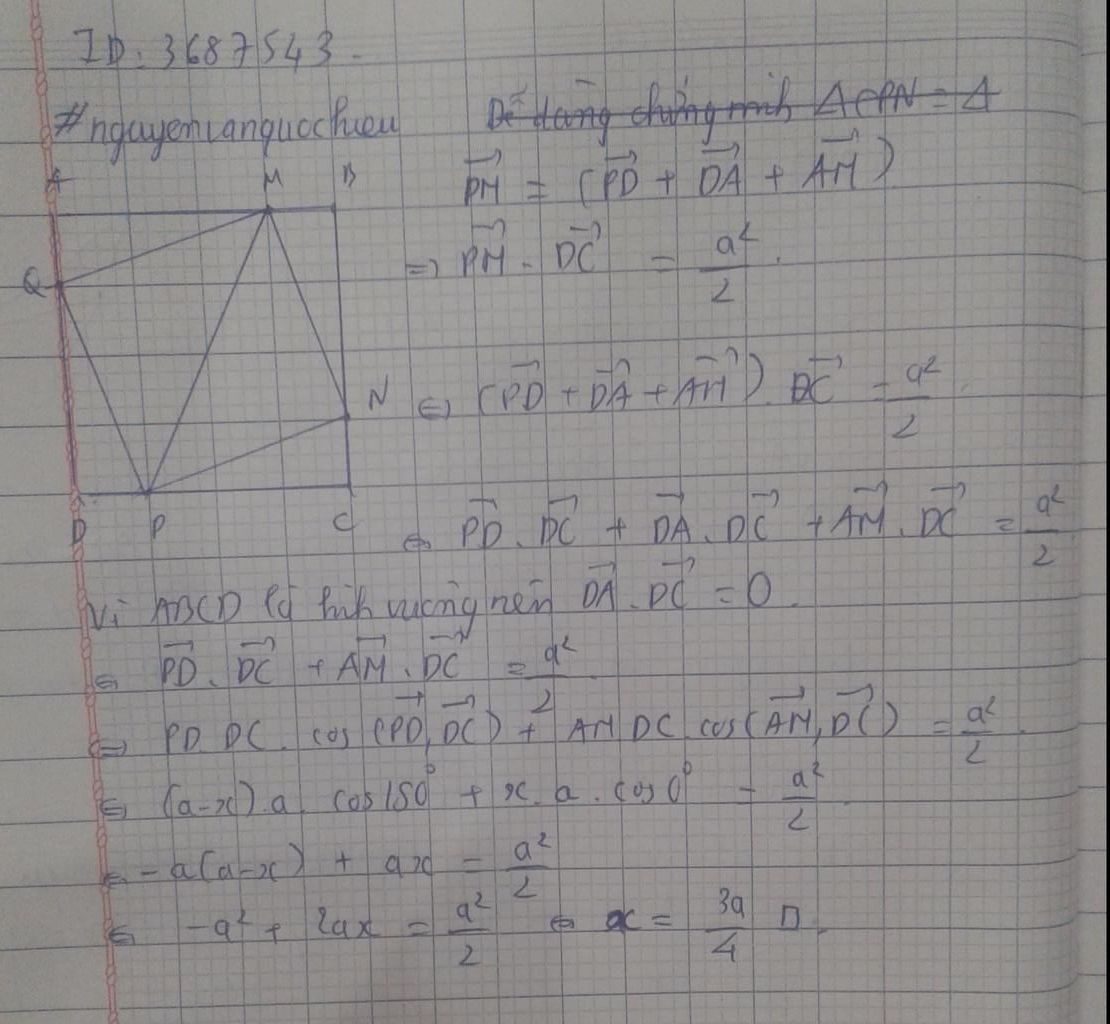 ID: 3687543.
#nguyenvanquochieu
Dễ dàng chứng minh ΔCPN = Δ
A M B
Q
N
D P C
$\overrightarrow{PM} = (\overrightarrow{PD} + \overrightarrow{DA} + \overrightarrow{AM})$
$\Rightarrow \overrightarrow{PM} \cdot \overrightarrow{DC} = \frac{a^2}{2}.$
$\Leftrightarrow (\overrightarrow{PD} + \overrightarrow{DA} + \overrightarrow{AM}) \cdot \overrightarrow{DC} = \frac{a^2}{2}.$
$\Leftrightarrow \overrightarrow{PD} \cdot \overrightarrow{DC} + \overrightarrow{DA} \cdot \overrightarrow{DC} + \overrightarrow{AM} \cdot \overrightarrow{DC} = \frac{a^2}{2}$
Vì ABCD là hình vuông nên $\overrightarrow{DA} \cdot \overrightarrow{DC} = 0.$
$\Leftrightarrow \overrightarrow{PD} \cdot \overrightarrow{DC} + \overrightarrow{AM} \cdot \overrightarrow{DC} = \frac{a^2}{2}$
$\Leftrightarrow PD.DC.\cos(\overrightarrow{PD}, \overrightarrow{DC}) + AM.DC.\cos(\overrightarrow{AM}, \overrightarrow{DC}) = \frac{a^2}{2}.$
$\Leftrightarrow (a-x).a.\cos 180^0 + x.a.\cos 0^0 = \frac{a^2}{2}$
$\Leftrightarrow -a(a-x) + ax = \frac{a^2}{2}$
$\Leftrightarrow -a^2 + 2ax = \frac{a^2}{2} \Leftrightarrow x = \frac{3a}{4}$ □.